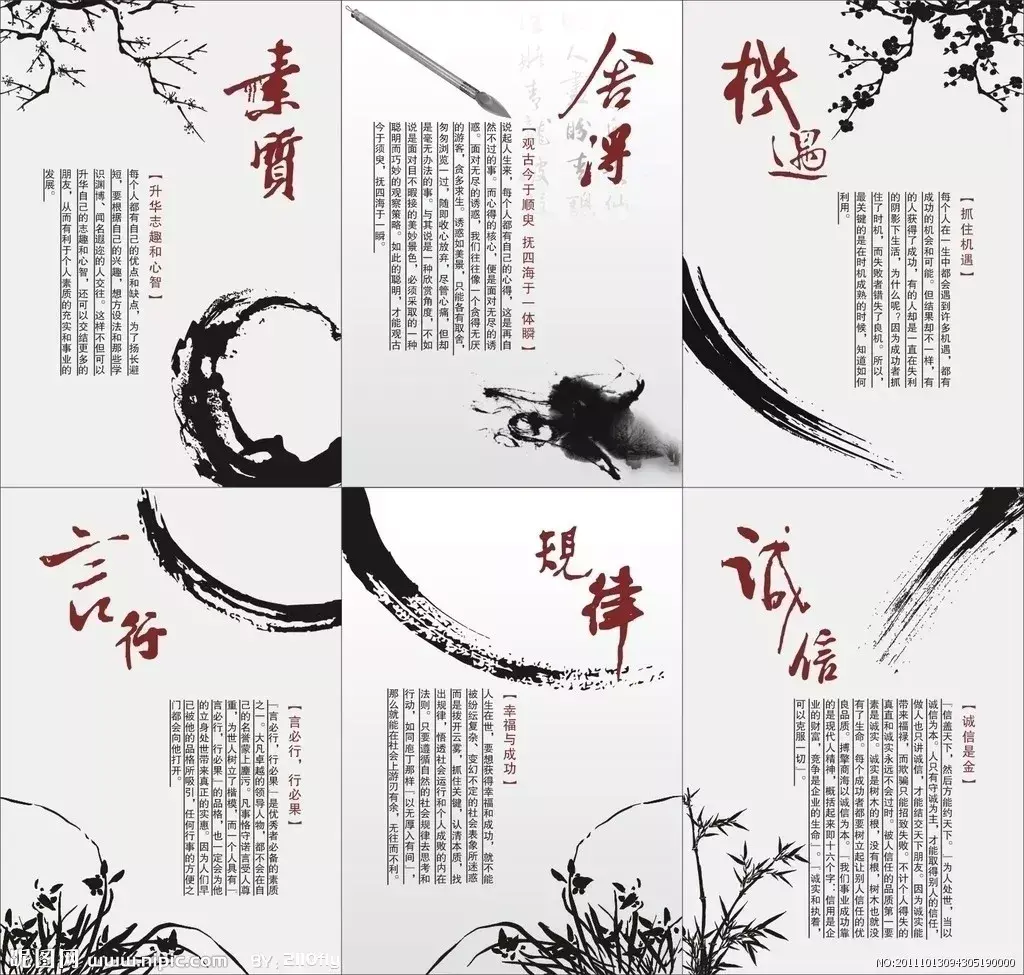 素質
【升华志趣和心智】
每个人都有自己的优点和缺点，为了扬长避
短，要根据自己的兴趣，想方设法和那些学
识渊博、闻名遐迩的人交往。这样不但可以
升华自己的志趣和心智，还可以交结更多的
朋友，从而有利于个人素质的充实和事业的
发展。
舍得
【观古今于顺臾 抚四海于一体瞬】
说起人生来，每个人都有自己的心得，这是再自
然不过的事。而心得的核心，便是面对无尽的诱
惑。面对无尽的诱惑，我们往往像一个贪得无厌
的游客，贪多求生。诱惑如美景，只能各有取舍，
匆匆浏览一过，随即收心放弃，尽管心痛，但却
是毫无办法的事。与其说是一种欣赏角度，不如
说是面对目不暇接的美妙景色，必须采取的一种
聪明而巧妙的观察策略。如此的聪明，才能观古
今于须臾，抚四海于一瞬。
機遇
【抓住机遇】
每个人在一生中都会遇到许多机遇，都有
成功的机会和可能。但结果却不一样，有
的人获得了成功，有的人却是一直在失利
的阴影下生活，为什么呢？因为成功者抓
住了时机，而失败者错失了良机。所以，
最关键的是在时机成熟的时候，知道如何
利用。
言行
【言必行，行必果】
「言必行，行必果」是优秀者必备的素质
之一。大凡卓越的领导人物，都不会在自
己的名誉蒙上塵污。凡事恪守诺言受人尊
重，为世人树立了楷模，而一个人具有「
言必行，行必果」的品格，也一定会为他
的立身处世带来真正的实惠。因为人们早
已被他的品格所吸引，任何行事的方便之
门都会向他打开。
規律
【幸福与成功】
人生在世，要想获得幸福和成功，就不能
被纷纭复杂、变幻不定的社会表象所迷惑
而是拨开云雾，抓住关键，认清本质，找
出规律，悟透社会运行和个人成败的内在
法则。只要遵循自然的社会规律去思考和
行动，如同庖丁那样「以无厚入有间」，
那么就能在社会上游刃有余，无往而不利。
誠信
【诚信是金】
「信盖天下，然后方能约天下。」为人处世，当以
诚信为本。人只有守诚为主，才能取得别人的信任，
做人也只讲诚信，才能结交天下朋友。因为诚实能
带来福禄，而欺骗只能招致失败。不计个人得失的
真直和诚实永远不会过时。被人信任的品质第一要
素是诚实。诚实是树木的根，没有根，树木也就没
有了生命。每个成功者都要树立起让别人信任的优
良品质。搏擎商海以诚信为本。「我们事业成功靠
的是现代人精神，概括起来即十六个字：信用是企
业的财富，竞争是企业的生命」。「诚实和执着，
可以克服一切」。
昵图网 www.nipic.com BY: 2110fly
NO:20111013094305190000